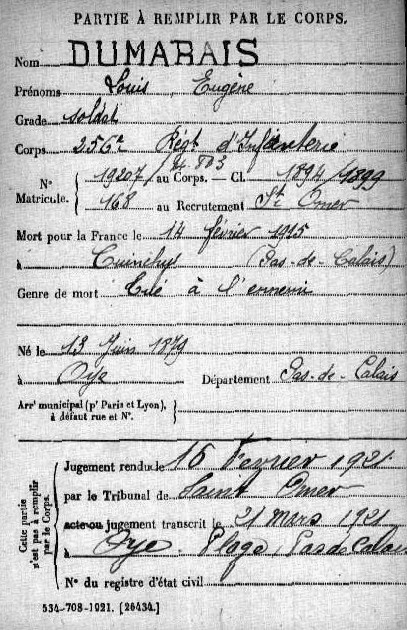 PARTIE À REMPLIR PAR LE CORPS.
Nom DUMARAIS
Prénoms Louis Eugène
Grade soldat
Corps 256e Régt d'Infanterie
N° Matricule. 19207 / au Corps. — Cl. 1894/1899
168 au Recrutement St Omer
Mort pour la France le 14 février 1915
à Cuinchy (Pas-de-Calais)
Genre de mort Tué à l'ennemi
Né le 13 Juin 1879
à Oye Département Pas-de-Calais
Arrt municipal (pr Paris et Lyon),
à défaut rue et N°.
Cette partie n'est pas à remplir par le Corps.
Jugement rendu le 16 Fevrier 1921
par le Tribunal de Saint Omer
acte ou jugement transcrit le 21 mars 1921
à Oye-Plage, Pas de Calais
N° du registre d'état civil
534-708-1921. [26434.]